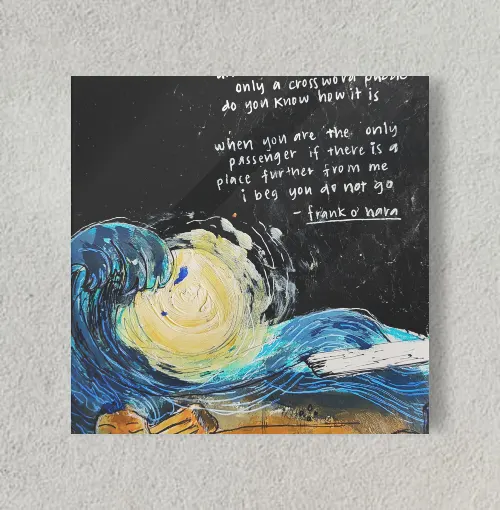 only a crossword puzzle
do you know how it is
when you are the only
passenger if there is a
place further from me
i beg you do not go
- frank o'hara